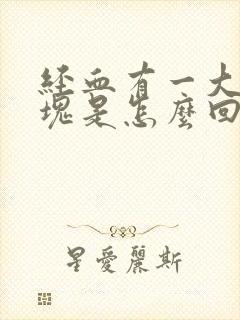 經血有一大
塊是怎麼回
星愛麗斯